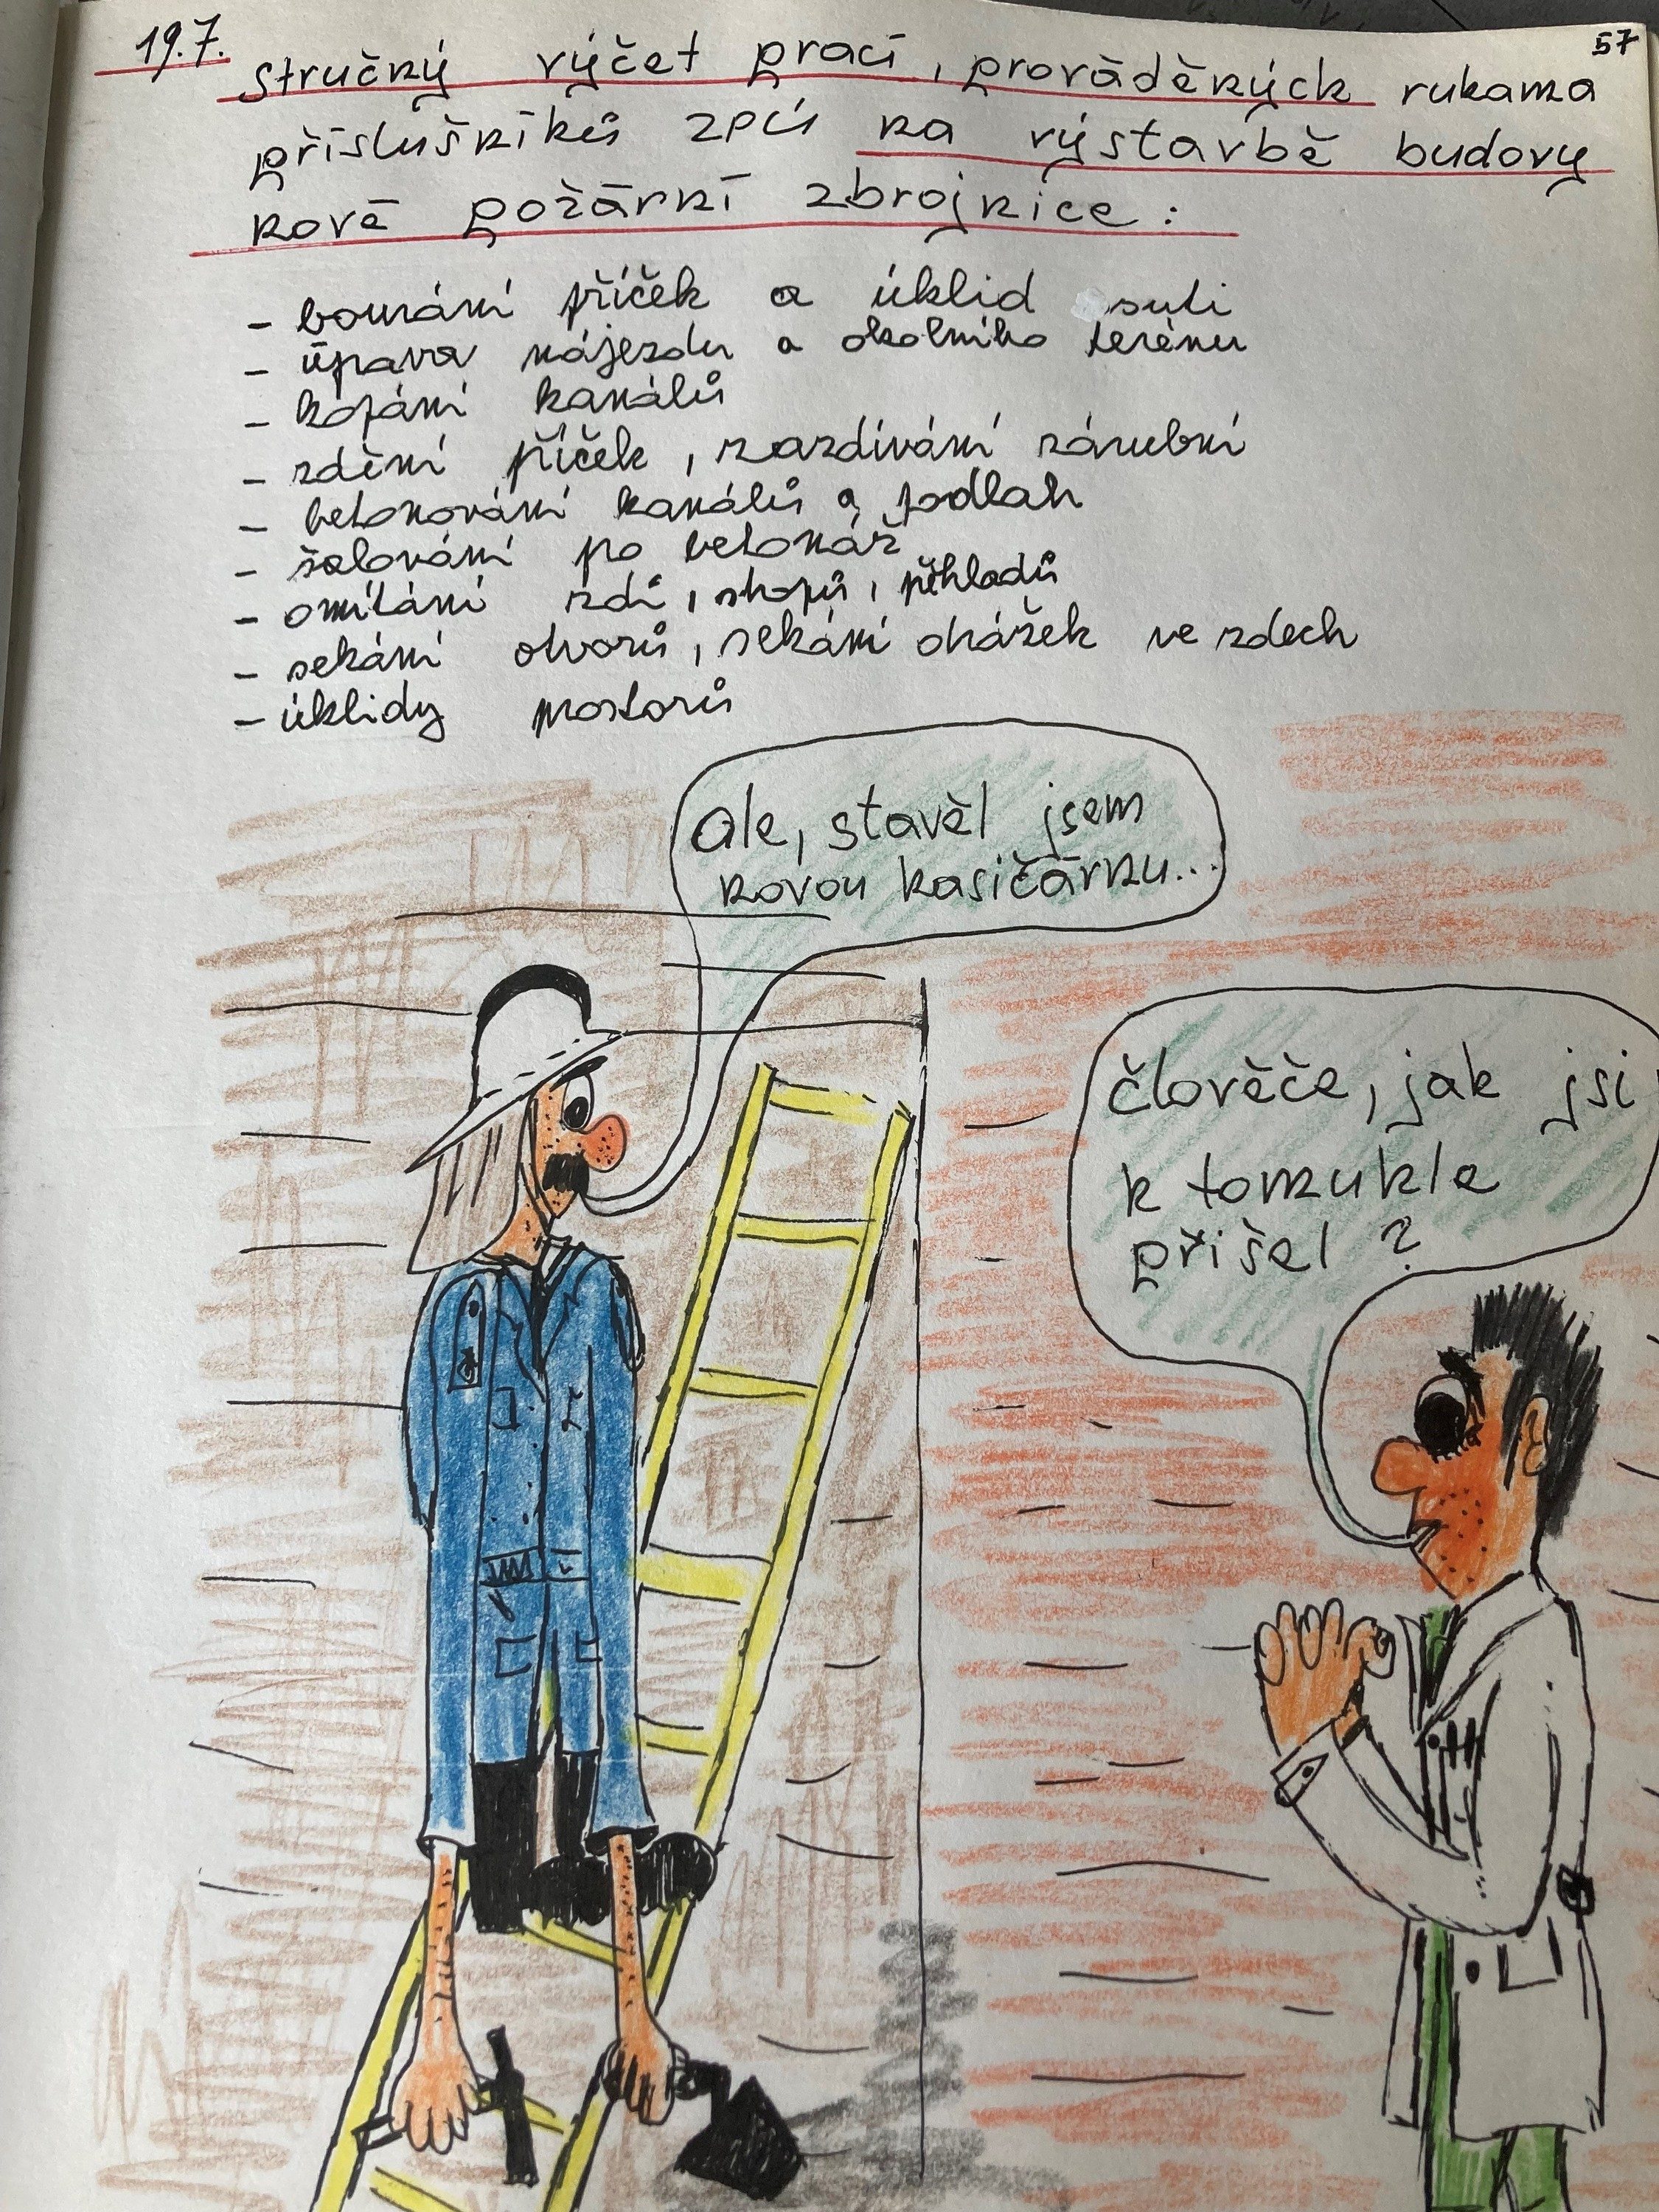 19.7. Stručný výčet prací, prováděných rukama
57
příslušníků ZPÚ na výstavbě budovy
nové požární zbrojnice:
- bourání příček a úklid suti
- úprava nájezdu a okolního terénu
- kopání kanálů
- zdění příček, zazdívání zárubní
- betonování kanálů a podlah
- šalování po betonáž
- omítání zdí, stropů, překladů
- sekání otvorů, sekání drážek ve zdech
- úklidy prostorů
Ale, stavěl jsem
novou hasičárnu...
člověče, jak jsi
k tomuhle
přišel?